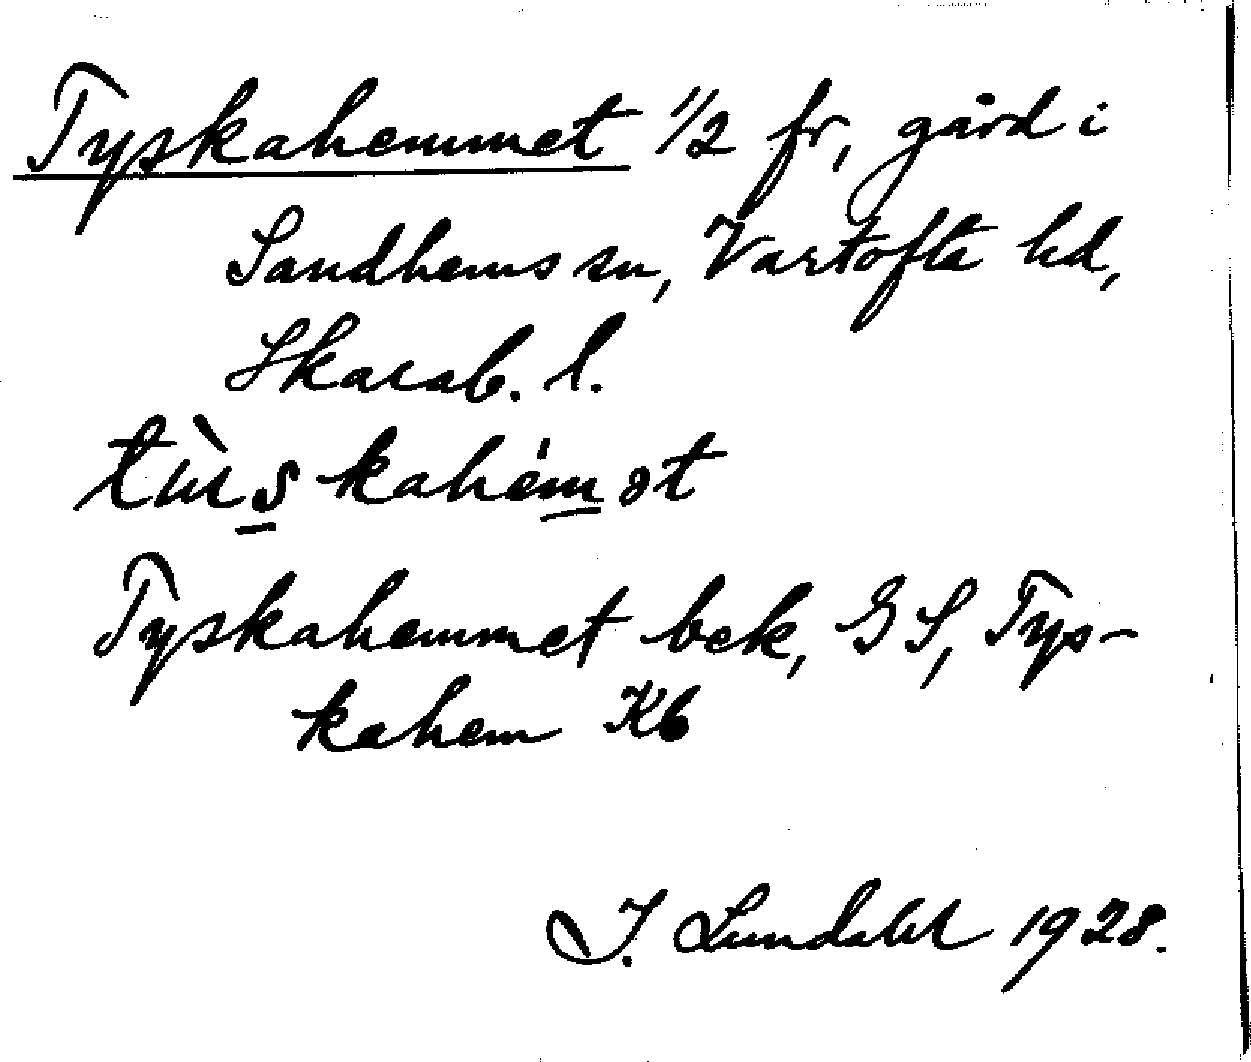 Tyskahemmet 1/2 fr, gård i
Sandhems sn, Vartofta hd,
Skarab. l.
Tyskahemmet bek, GS, Tys-
kahem Kb
I. Lundahl 1928.